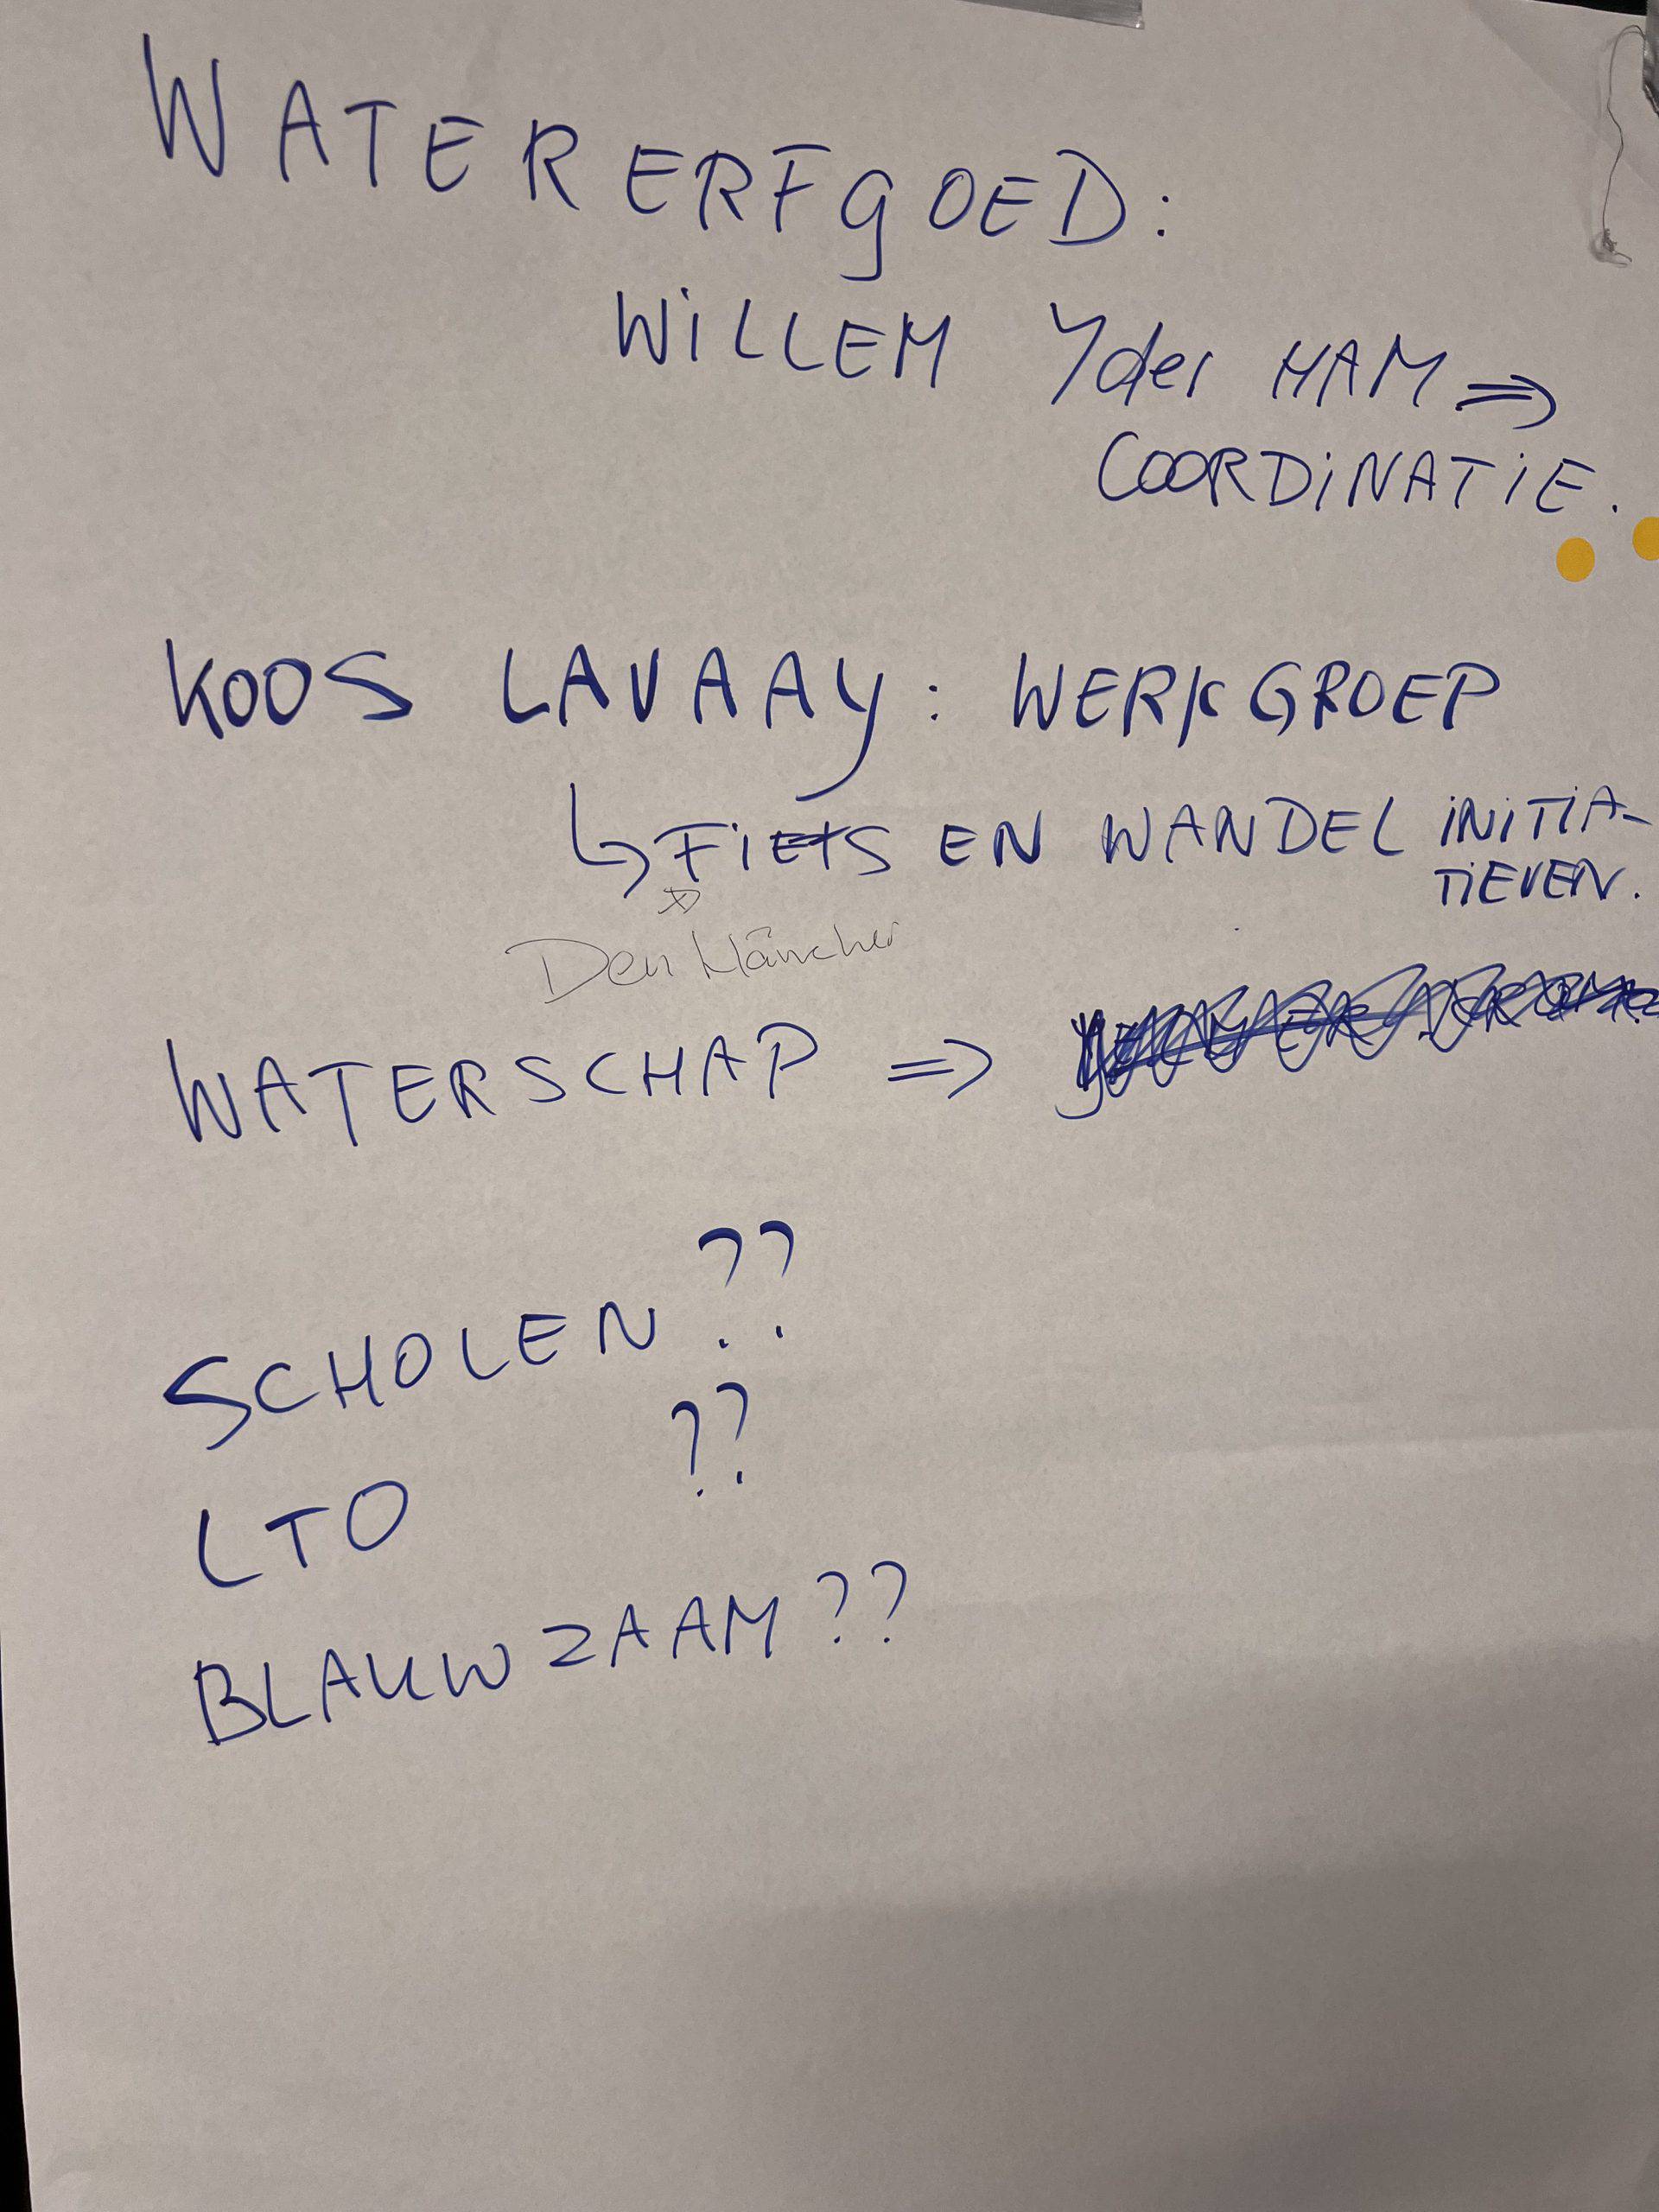 WATERERFGOED:
WILLEM v/der HAM ⇒
COORDINATIE.
KOOS LAVAAY: WERKGROEP
↳ FIETS EN WANDEL INITIA-
TIEVEN.
Den
WATERSCHAP ⇒
SCHOLEN ??
LTO ??
BLAUWZAAM ??